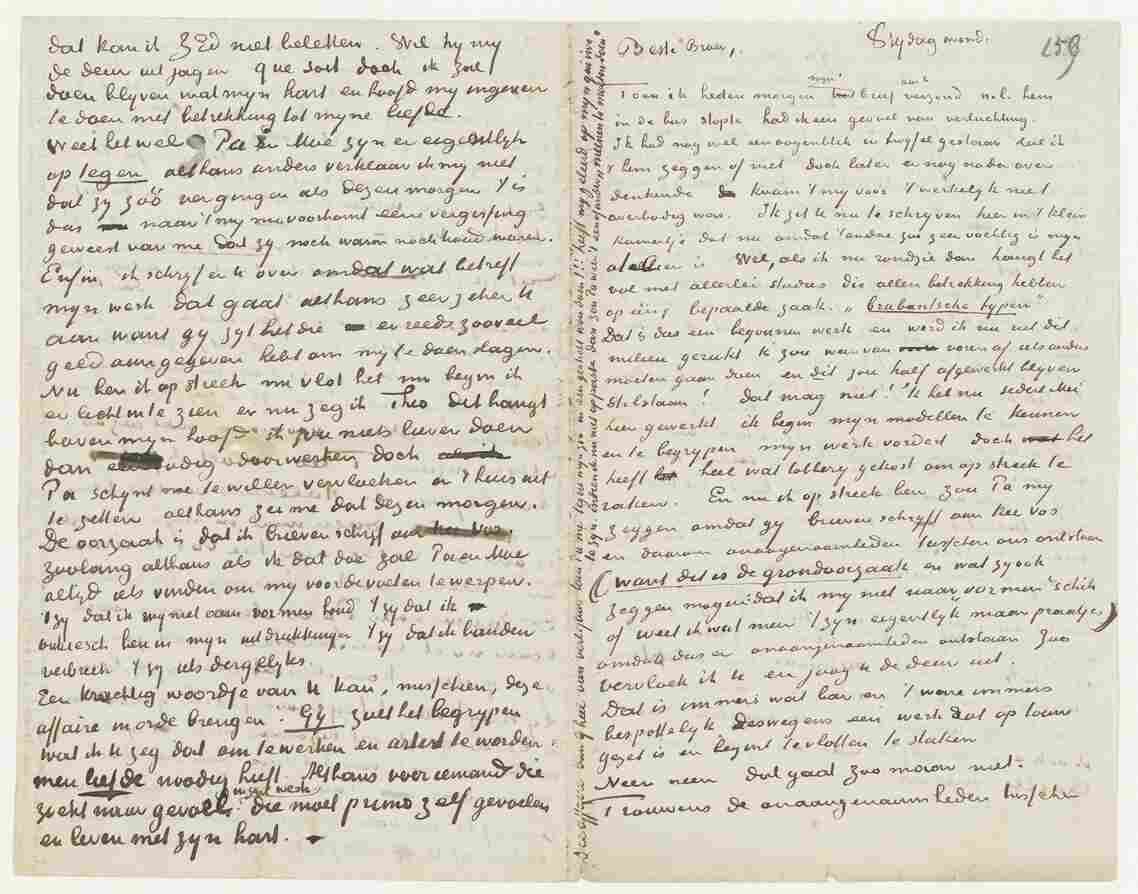 dat kan ik z.Ed niet beletten. Wil hy my
de deur uit jagen que soit doch ik zal
doen blyven wat myn hart en hoofd my ingeven
te doen met betrekking tot myne liefde.
Weet het wel Pa en Moe zyn er eigentlyk
op tegen althans anders verklaar ik my niet
dat zy zóó ver gingen als dezen morgen 't is
dus naar 't my nu voorkomt eene vergissing
geweest van me dat zy noch warm noch koud waren.
Enfin, ik schryf er U over omdat wat betreft
myn werk dat gaat althans zeer zeker U
aan want gy zyt het die er reeds zooveel
geld aan gegeven hebt om my te doen slagen.
Nu ben ik op streek nu vlot het nu begin ik
er licht in te zien en nu zeg ik Theo dit hangt
boven myn hoofd ik zou niets liever doen
dan doorwerken doch
Pa schynt me te willen vervloeken en 't huis uit
te zetten althans zei me dat dezen morgen.
De oorzaak is dat ik brieven schryf aan Kee Vos.
Zoolang althans als ik dat doe zal Pa en Moe
altyd iets vinden om my voor de voeten te werpen.
't zy dat ik my niet aan vormen houd 't zy dat ik
onkiesch ben in myn uitdrukkingen 't zy dat ik banden
verbreek 't zy iets dergelyks.
Een krachtig woordje van U kan, misschien, deze
affaire in orde brengen. Gy zult het begrypen
wat ik U zeg dat om te werken en artist te worden
men liefde noodig heeft. Althans voor iemand die
in zyn werk
zoekt naar gevoel: die moet primo zelf gevoelen
en leven met zyn hart.
Vrydag avond.
159
Beste Broer,
myn aan U
Toen ik heden morgen brief verzond n.l. hem
in de bus stopte had ik een gevoel van verluchting.
Ik had nog wel een oogenblik in twyfel gestaan zal ik
't hem zeggen of niet doch later er nog nader over
denkende kwam 't my voor 't werkelyk niet
overbodig was. Ik zit U nu te schryven hier in 't klein
kamertje dat nu omdat 't andre zoo zeer vochtig is myn
atelier is. Wel, als ik nu rondzie dan hangt het
vol met allerlei studies die allen betrekking hebben
op één bepaalde zaak. „Brabantsche typen"
Dat is dus een begonnen werk en werd ik nu uit dit
milieu gerukt ik zou weer van voren af iets anders
moeten gaan doen en dit zou half afgewerkt blyven
stilstaan! Dat mag niet! 'k heb nu sedert Mei
hier gewerkt ik begin myn modellen te kennen
en te begrypen myn werk vordert doch het
heeft heel wat tobbery gekost om op streek te
raken. En nu ik op streek ben zou Pa my
zeggen omdat gy brieven schryft aan Kee Vos
en daarom onaangenaamheden tusschen ons ontstaan
(want dit is de grondoorzaak en wat zy ook
zeggen mogen: dat ik my niet naar vormen "schik
of weet ik wat meer 't zyn eigentlyk maar praatjes)
omdat dus er onaangenaamheden ontstaan zoo
vervloek ik U en jaag U de deur uit.
Dat is immers wat bar en 't ware immers
bespottelyk deswegens een werk dat op touw
gezet is en begint te vlotten te staken
Neen neen dat gaat zoo maar niet.
Trouwens de onaangenaamheden tusschen